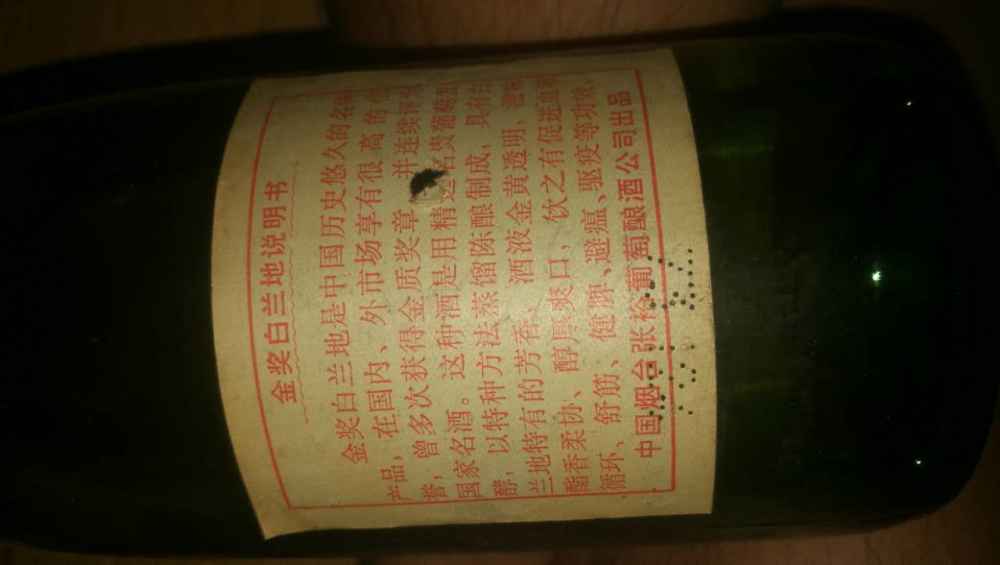 金奖白兰地说明书
金奖白兰地是中国历史悠久的名
产品，在国内、外市场享有很高的信
誉，曾多次获得金质奖章 并连续评
国家名酒。这种酒是用精选名贵葡萄
酵，以特种方法蒸馏陈酿制成，具有白
兰地特有的芳香，酒液金黄透明，
酯香柔协、醇厚爽口，饮之有促进血
循环、舒筋、健脾、避瘟、驱疫等功效。
中国烟台张裕葡萄酿酒公司出品